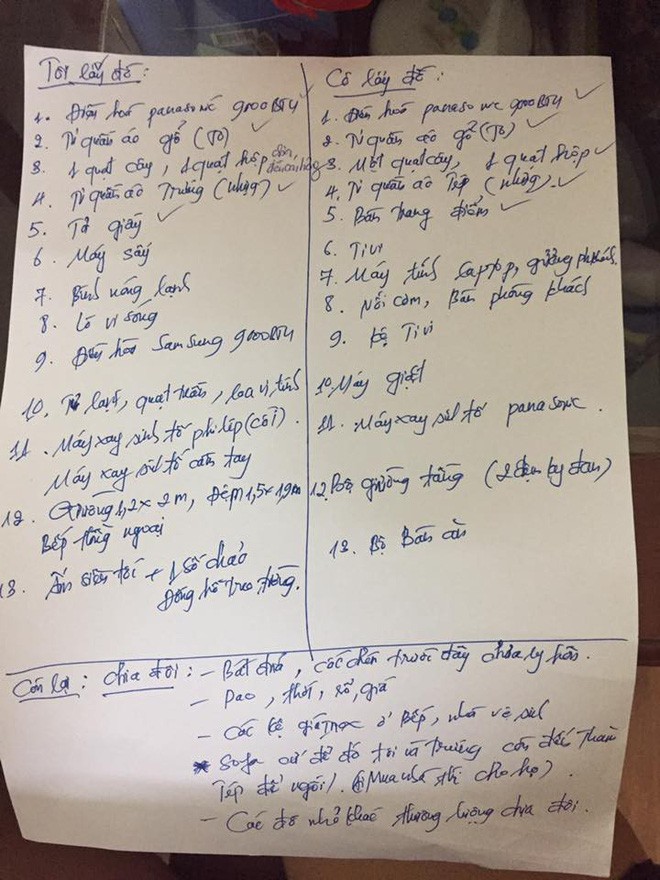 Tôi lấy đồ:
1. Điều hoà panasonic 9000BTU
2. Tủ quần áo gỗ (To)
3. 1 quạt cây, 1 quạt hộp
4. Tủ quần áo Trường (nhựa)
5. Tủ giày
6. Máy sấy
7. Bình nóng lạnh
8. Lò vi sóng
9. Điều hoà Samsung 9000BTU
10. Tủ lạnh, quạt trần, loa vi tính
11. Máy xay sinh tố philip (cối).
Máy xay sinh tố cầm tay
12. Giường 1,2 x 2m, Đệm 1,5 x 1,9m
Bếp hồng ngoại
13. Ấm siêu tốc + 1 số chảo
Đồng hồ treo tường.
Cô lấy đồ:
1. Điều hoà panasonic 9000BTU
2. Tủ quần áo gỗ (To)
3. Một quạt cây, 1 quạt hộp
4. Tủ quần áo Tép (nhựa).
5. Bàn trang điểm
6. Tivi
7. Máy tính laptop, gương
8. Nồi cơm, Bàn phòng khách
9. Kệ Tivi
10. Máy giặt
11. Máy xay sinh tố panasonic.
12. Bộ giường tầng (2 đệm
13. Bộ Bàn ăn
Còn lại: chia đôi: - Bát đũa, cốc chén trước đây chưa ly hôn.
- Dao, thớt, rổ, giá
- Các kệ giá inox ở Bếp, nhà vệ sinh
* Sofa cứ để đó tôi và Trường còn đến thăm
Tép để ngồi. (Mua nhà thì cho họ).
- Các đồ nhỏ khác thương lượng chia đôi.